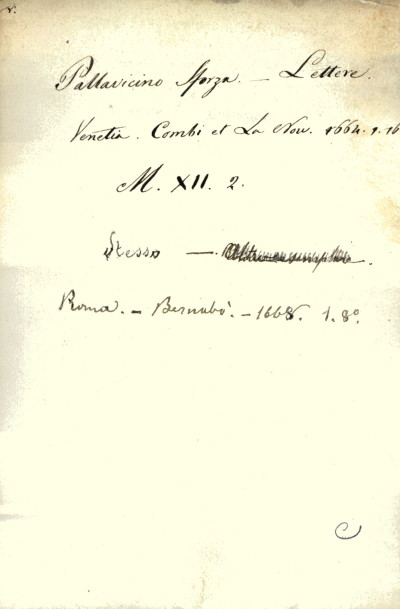 r.
Pallavicino Sforza. — Lettere.
Venetia. Combi et La Nou. 1664. 1. 16
M. XII. 2.
Stesso — .
Roma. — Bernabò. — 1668. 1. 8º